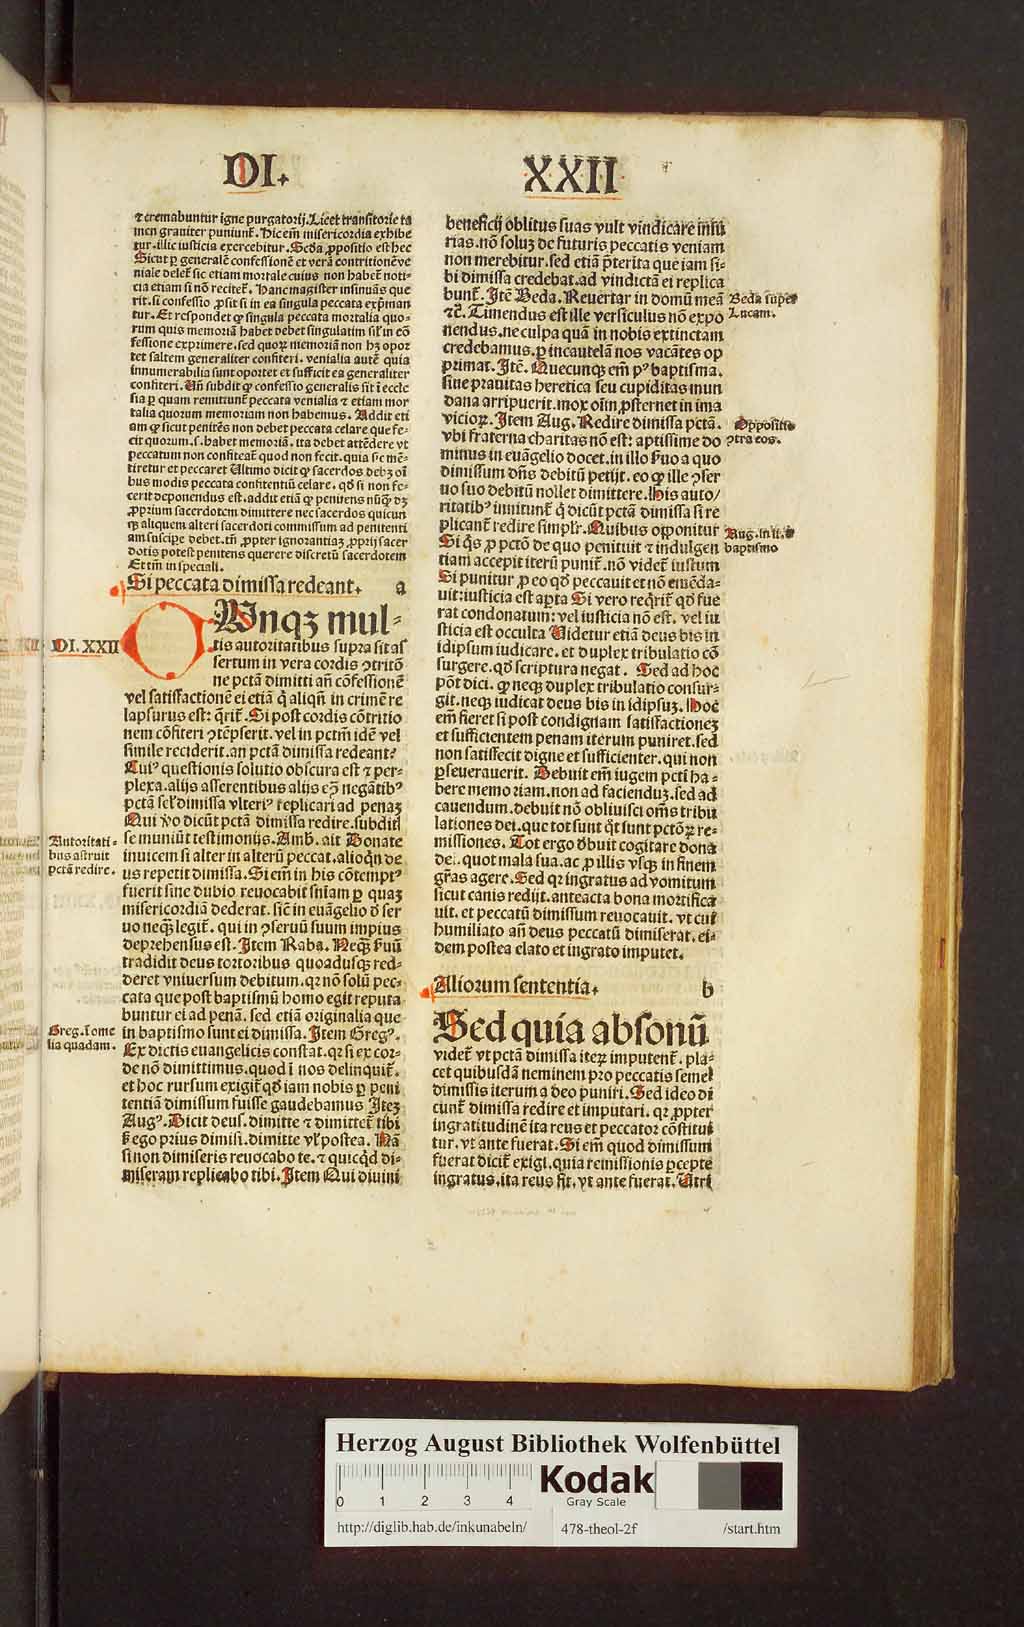 DI.
XXII
⁊ cremabuntur igne purgatorij. Licet transitorie ta
men grauiter puniunt᷑. Hic em̄ misericordia exhibe
tur. illic iusticia excercebitur. Sc̄da ꝓpositio est hec
Sicut ꝑ generalē confessionē et verā contritionē ve
niale delet᷑ sic etiam mortale cuius non habet᷑ noti-
cia etiam si nō recitet᷑. Hanc magister insinuās que
rit. si confessio ꝓsit si in ea singula peccata exp̄man
tur. Et respondet ꝙ singula peccata mortalia quo-
rum quis memoriā habet debet singulatim sil̓ in cō
fessione exprimere. sed quoꝝ memoriā non hꝫ opor
tet saltem generaliter confiteri. venialia autē quia
innumerabilia sunt oportet et sufficit ea generaliter
confiteri. Un̄ subdit ꝙ confessio generalis fit ī eccle
sia ꝑ quam remittunt᷑ peccata venialia ⁊ etiam mor
talia quorum memoriam non habemus. Addit eti
am ꝙ sicut penitēs non debet peccata celare que fe-
cit quorum .s. habet memoriā. ita debet attēdere vt
peccatum non confiteat᷑ quod non fecit. quia sic mē-
tiretur et peccaret Ultimo dicit ꝙ sacerdos debꝫ oī
bus modis peccata confitentiū celare. qđ si non fe-
cerit deponendus est. addit etiā ꝙ penitens nūqͣꝫ dꝫ
ꝓprium sacerdotem dimittere nec sacerdos quicun
qꝫ aliquem alteri sacerdoti commissum ad penitenti
am suscipe debet. tn̄ ꝓpter ignorantiaꝫ ꝓprij sacer
dotis potest penitens querere discretū sacerdotem
Et tm̄ in speciali.
Si peccata dimissa redeant. a
DI. XXII
Unqꝫ mul-
tis autoritatibus supra sit as
sertum in vera cordis ꝯtritō
ne pctā dimitti an̄ cōfessionē
vel satisfactionē ei etiā q̇ aliqn̄ in crimē re
lapsurus est: q̄rit᷑. Si post cordis cōtritio
nem cōfiteri ꝯtēpserit. vel in pctm̄ idē vel
simile reciderit. an pctā dimissa redeant?
Cuiꝰ questionis solutio obscura est ⁊ per-
plexa. alijs asserentibus alijs eꝯ̄ negātibꝰ
pctā sel̓ dimissa vlteriꝰ replicari ad penaꝫ
Qui v̄o dicūt pctā dimissa redire. subditꝭ
Autoritati-
bus astruit
pctā redire.
se muniūt testimonijs. Amb. ait Donate
inuicem si alter in alterū peccat. alioqͥn de
us repetit dimissa. Si em̄ in his cōtemptꝰ
fuerit sine dubio reuocabit sn̄iam ꝑ quaꝫ
misericordiā dederat. sic̄ in euāgelio đ ser
uo neqꝫ legit᷑. qui in ꝯseruū suum impius
deprehensus est. Item Raba. Neqꝫ s̄uū
tradidit deus tortoribus quoadusqꝫ red-
deret vniuersum debitum. qꝛ nō solū pec-
cata que post baptismū homo egit reputa
buntur ei ad penā. sed etiā originalia que
Greg. ī ome
lia quadam.
in baptismo sunt ei dimissa. Item Gregꝰ.
Ex dictis euangelicis constat. qꝛ si ex cor-
de nō dimittimus. quod ī nos delinquit᷑.
et hoc rursum exigit᷑ qđ iam nobis ꝑ peni
tentiā dimissum fuisse gaudebamus Iteꝫ
Augꝰ. Dicit deus. dimitte ⁊ dimittet᷑ tibi
s̄ ego prius dimisi. dimitte vl̓ postea. Nā
si non dimiseris reuocabo te. ⁊ quicqͥd di-
miseram replicabo tibi. Item Qui diuini
beneficij oblitus suas vult vindicare iniu
rias. nō soluꝫ de futuris peccatis veniam
non merebitur. sed etiā p̄terita que iam si-
bi dimissa credebat. ad vindictā ei replica
bunt᷑. Itē Beda. Reuertar in domū meā
Beda super
Lucam.
⁊c̄. Timendus est ille versiculus nō expo
nendus. ne culpa quā in nobis extinctam
credebamus. ꝑ incautelā nos vacātes op
primat. Itē. Quecunqꝫ em̄ pꝰ baptisma.
siue prauitas heretica seu cupiditas mun
dana arripuerit. mox oīm ꝓsternet in ima
vicioꝝ. Item Aug. Redire dimissa pctā.
Oppositio
ꝯtra eos.
vbi fraterna charitas nō est: aptissime do
minus in euāgelio docet. in illo s̄uo a quo
dimissum dn̄s debitū petijt. eo ꝙ ille ꝯser
uo suo debitū nollet dimittere. His auto/
ritatibꝰ innitunt᷑ q̇ dicūt pctā dimissa si re
plicant᷑ redire simplr̄. Quibus oꝓponitur
Aug. in li. d̄
baptismo
Si q̇s ꝓ pctō de quo penituit ⁊ indulgen
tiam accepit iterū punit᷑. nō videt᷑ iustum
Si punitur ꝓ eo qđ peccauit et nō emēda-
uit: iusticia est apta Si vero req̇rit᷑ qđ fue
rat condonatum: vel iusticia nō est. vel iu
sticia est occulta Uidetur etiā deus bis in
idipsum iudicare. et duplex tribulatio cō
surgere. qđ scriptura negat. Sed ad hoc
pōt dici. ꝙ neqꝫ duplex tribulatio consur-
git. neqꝫ iudicat deus bis in idipsuꝫ. Hoc
em̄ fieret si post condignam satisfactioneꝫ
et sufficientem penam iterum puniret. sed
non satisfecit digne et sufficienter. qui non
ꝑseuerauerit. Debuit em̄ iugem pcti ha-
bere memoriam. non ad faciendꝫ. sed ad
cauendum. debuit nō obliuisci om̄s tribu
lationes dei. que tot sunt q̇t sunt pctōꝝ re-
missiones. Tot ergo đbuit cogitare dona
dei. quot mala sua. ac ꝓ illis vsqꝫ in finem
gr̄as agere. Sed qꝛ ingratus ad vomitum
sicut canis redijt. anteacta bona mortifica
uit. et peccatū dimissum reuocauit. vt cui
humiliato an̄ deus peccatū dimiserat. ei-
dem postea elato et ingrato imputet.
Aliorum sententia. b
Sed quia absonū
videt᷑ vt pctā dimissa iteꝝ imputent᷑. pla-
cet quibusdā neminem pro peccatis semel
dimissis iterum a deo puniri. Sed ideo di
cunt᷑ dimissa redire et imputari. qꝛ ꝓpter
ingratitudinē ita reus et peccator cōstitui
tur. vt ante fuerat. Si em̄ quod dimissum
fuerat dicit᷑ exigi. quia remissionis ꝑcepte
ingratus. ita reus fit. vt ante fuerat. Utri
Herzog August Bibliothek Wolfenbüttel
0 1 2 3 4
Kodak
Gray Scale
http://diglib.hab.de/inkunabeln/ 478-theol-2f /start.htm